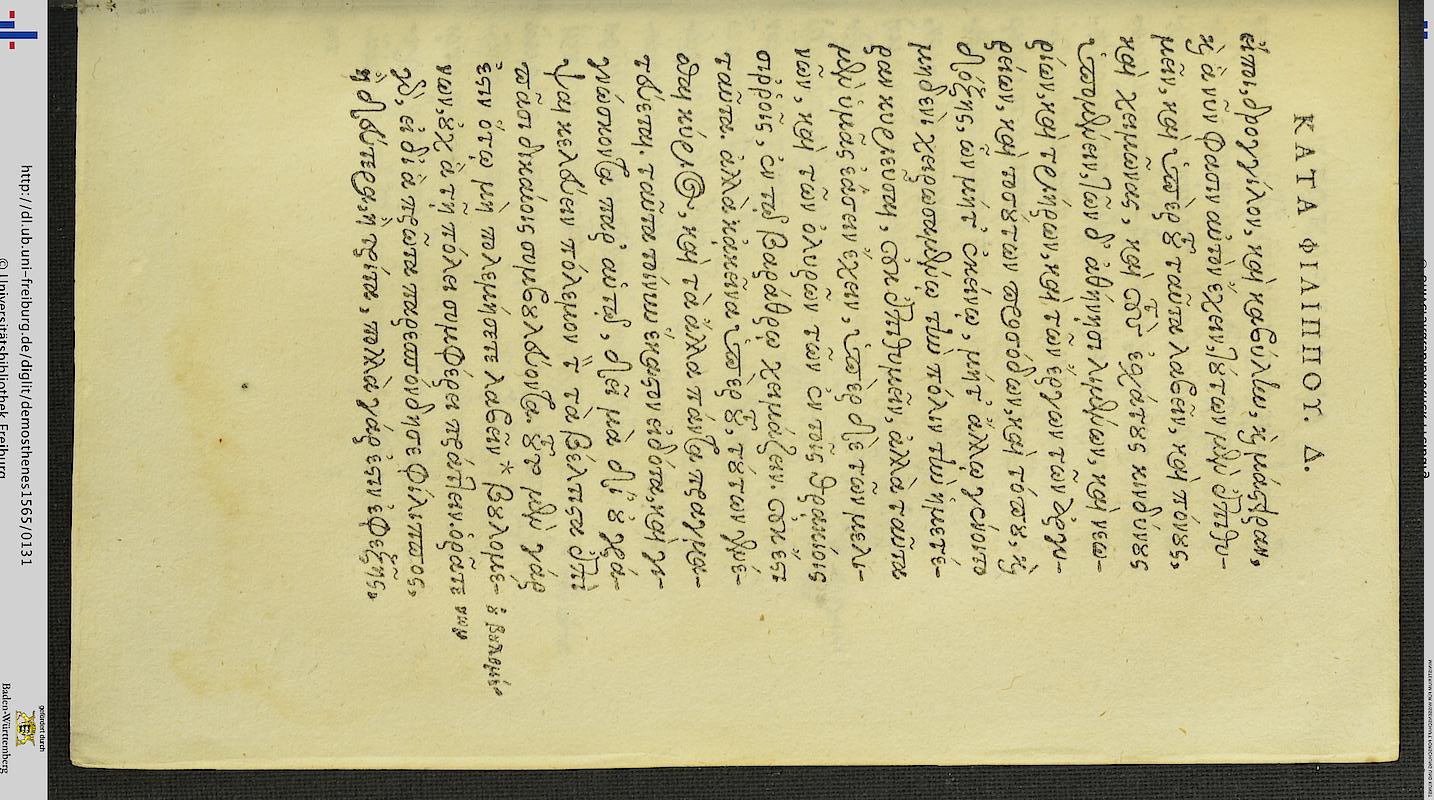 ΚΑΤΑ ΦΙΛΙΠΠΟΥ. Δ.
εἴποι, δρογγίλον, καὶ καβύλην, καὶ μάστειραν,
καὶ ἃ νῦν φασιν αὐτὸν ἔχειν,) τούτων μὲν ἐπιθυ-
μεῖν, καὶ ὑπὲρ τοῦ ταῦτα λαβεῖν, καὶ πόνους,
καὶ χειμῶνας, καὶ τοὺς ἐσχάτους κινδύνους
ὑπομένειν, τῶν δ' ἀθήνησι λιμένων, καὶ νεω-
ρίων, καὶ τριηρῶν, καὶ τῶν ἔργων τῶν ἀργυ-
ρείων, καὶ τοσούτων προσόδων, καὶ τόπου, καὶ
δόξης, ὧν μήτ' ἐκείνῳ, μήτ' ἄλλῳ γένοιτο
μηδενὶ χειρωσαμένῳ τὴν πόλιν τὴν ἡμετέ-
ραν κυριεῦσαι, οὐκ ἐπιθυμεῖν, ἀλλὰ ταῦτα
μὲν ὑμᾶς ἐάσειν ἔχειν, ὑπὲρ δὲ τῶν μελι-
νῶν, καὶ τῶν ὀλυρῶν τῶν ἐν τοῖς θρᾳκίοις
σιρροῖς, ἐν τῷ βαράθρῳ χειμάζειν. οὐκ ἔστι
ταῦτα. ἀλλὰ κἀκεῖνα ὑπὲρ τοῦ, τούτων γενέ-
σθαι κύριος, καὶ τὰ ἄλλα πάντα πραγμα-
τεύεται. ταῦτα τοίνυν ἕκαστον εἰδότα, καὶ γι-
γνώσκοντα παρ' αὑτῷ, δεῖ μὰ Δί' οὐ γρά-
ψαι κελεύειν πόλεμον τὸν τὰ βέλτιστα ἐπὶ
πᾶσι δικαίοις συμβουλεύοντα. τοῦτο μὲν γάρ
ἐστιν ὅτῳ μὴ πολεμήσετε λαβεῖν * βουλομέ- ὃ βουλομέ
νων, οὐχ ἃ τῇ πόλει συμφέρει πράττειν. ὁρᾶτε νων
γὰρ, εἰ δι' ἃ πρῶτα παρεσπόνδησε φίλιππος,
ἢ δεύτερα, ἢ τρίτα, πολλὰ γάρ ἐστιν ἐφεξῆς,
http://dl.ub.uni-freiburg.de/diglit/demosthenes1565/0131
© Universitätsbibliothek Freiburg
gefördert durch
Baden-Württemberg